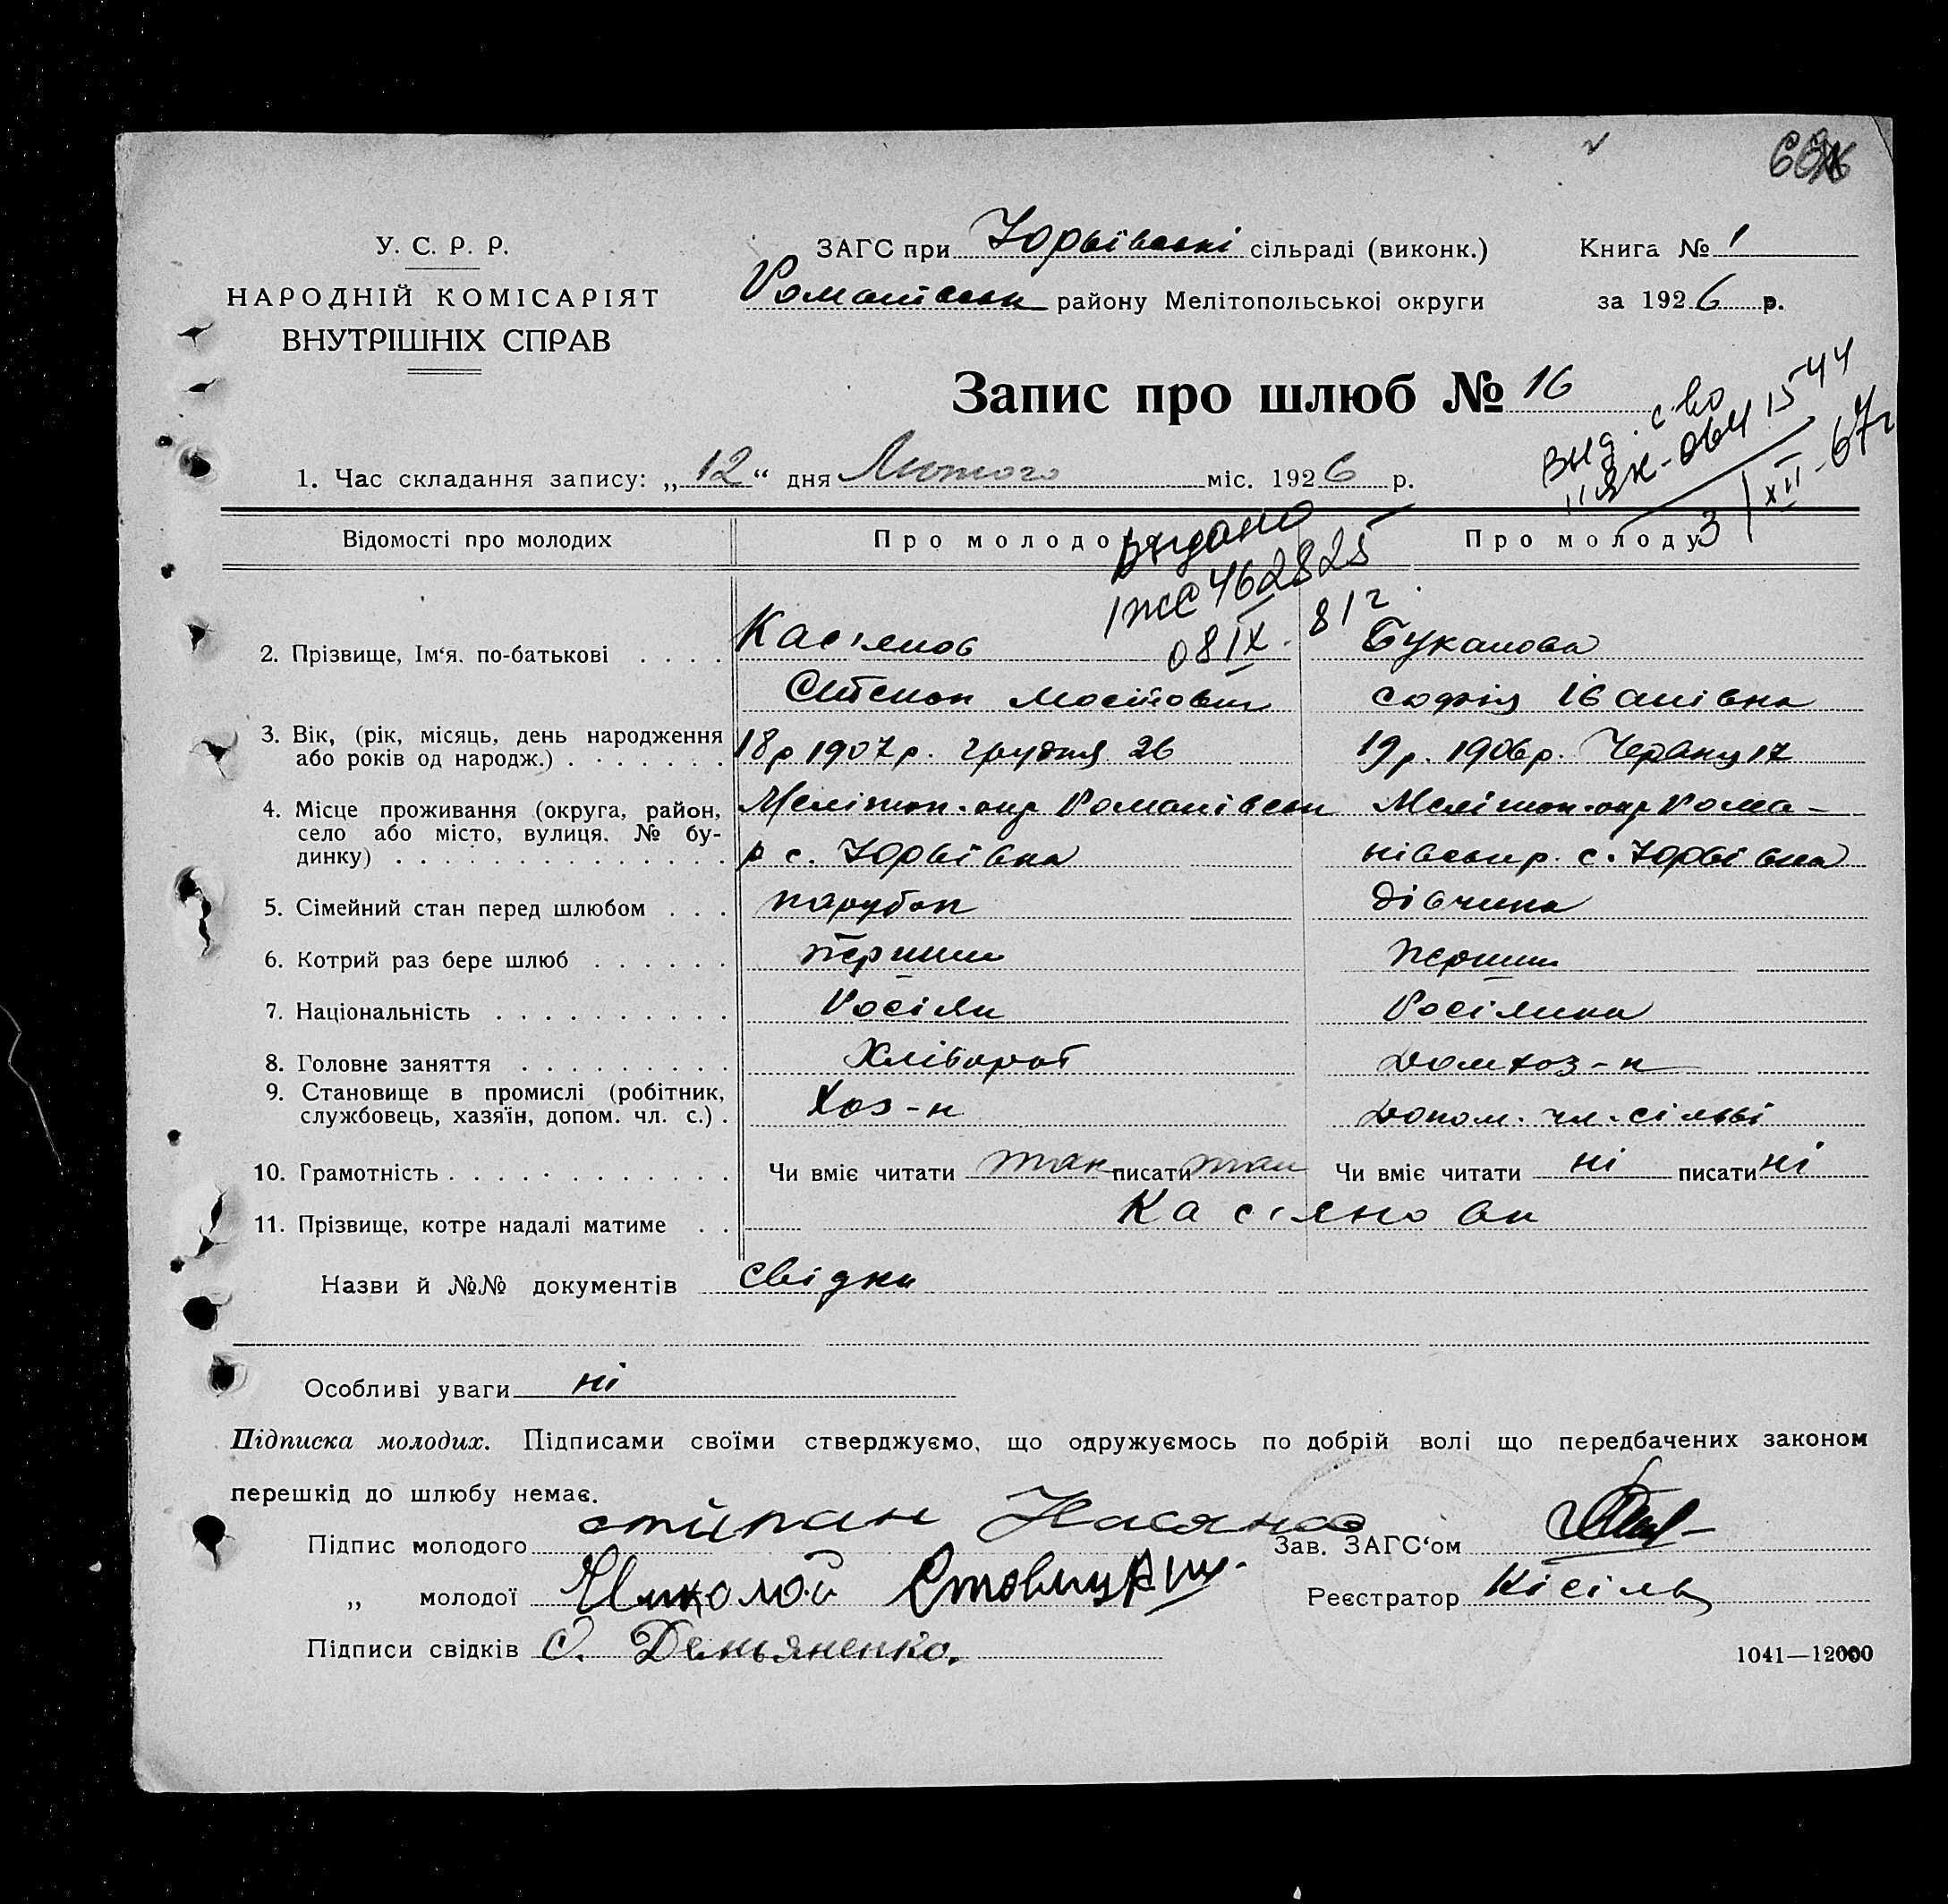 У. С. Р. Р.
НАРОДНІЙ КОМІСАРІЯТ
ВНУТРІШНІХ СПРАВ
ЗАГС при Юрьівські сільраді (виконк.) Книга № 1
Романівськ району Мелітопольської округи за 1926 р.
Запис про шлюб № 16
1544
3/XII-67г
1. Час складання запису: „12“ дня Лютого міс. 1926 р.
Відомості про молодих Про молодо Про молоду
Видано
462825
08 IX. 81г.
2. Прізвище, Ім‘я. по-батькові Кас'янов Буканова
Степан Софія Іванівна
3. Вік, (рік, місяць, день народження
або років од народж.) 18р 1907р. грудня 26 19р. 1906р. Червня 17
4. Місце проживання (округа, район,
село або місто, вулиця. № бу-
динку)
Мелітоп. окр Романівськ Мелітоп. окр Рома-
р с. Юрьівка нівськ р. с. Юрьівка
5. Сімейний стан перед шлюбом парубок дівчина
6. Котрий раз бере шлюб перший перший
7. Національність Росіян Росіянка
8. Головне заняття Хлібороб Домхоз-к
9. Становище в промислі (робітник,
службовець, хазяїн, допом. чл. с.) Хоз-н Допом. чл.
10. Грамотність Чи вміє читати так писати так Чи вміє читати ні писати ні
11. Прізвище, котре надалі матиме Кас'янови
Назви й №№ документів свідки
Особливі уваги ні
Підписка молодих. Підписами своїми стверджуємо, що одружуємось по добрій волі що передбачених законом
перешкід до шлюбу немає.
Підпис молодого Касянов Зав. ЗАГС‘ом
„ молодої Николай Реєстратор Кісіль
Підписи свідків Демьяненко.
1041—12000